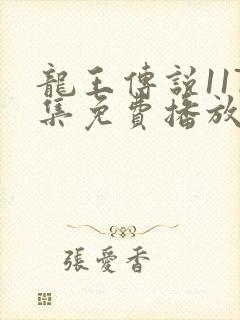 龍王傳說117
集免費播放
張愛香